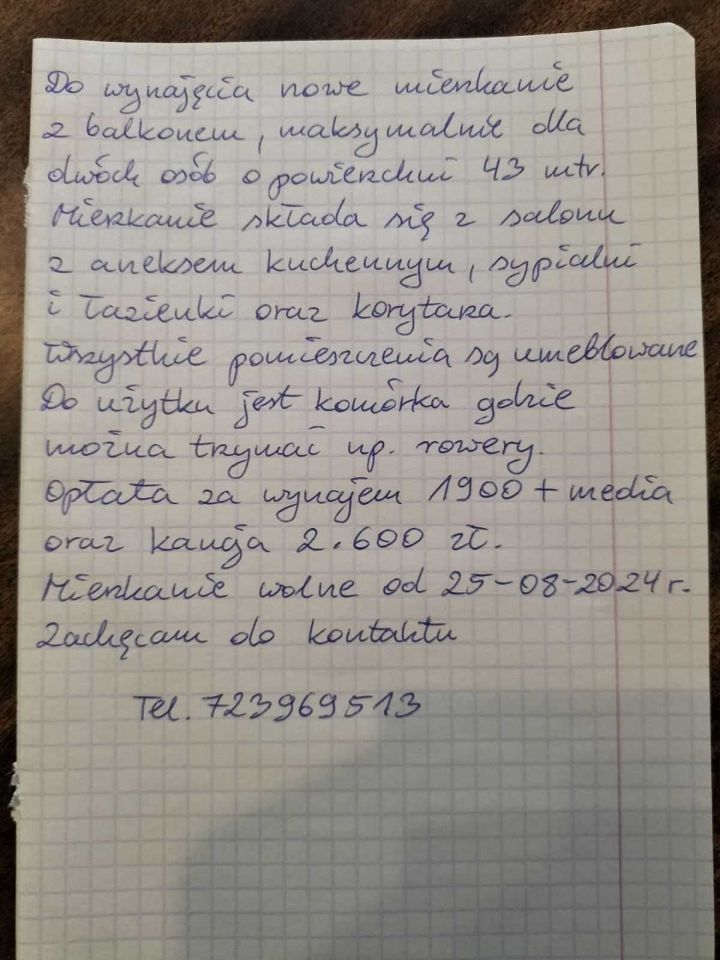 Do wynajęcia nowe mieszkanie
z balkonem, maksymalnie dla
dwóch osób o powierzchni 43 mtr.
Mieszkanie składa się z salonu
z aneksem kuchennym, sypialni
i łazienki oraz korytarza.
Wszystkie pomieszczenia są umeblowane
Do użytku jest komórka gdzie
można trzymać np. rowery.
Opłata za wynajem 1900 + media
oraz kaucja 2.600 zł.
Mieszkanie wolne od 25-08-2024 r.
Zachęcam do kontaktu
Tel. 723969513